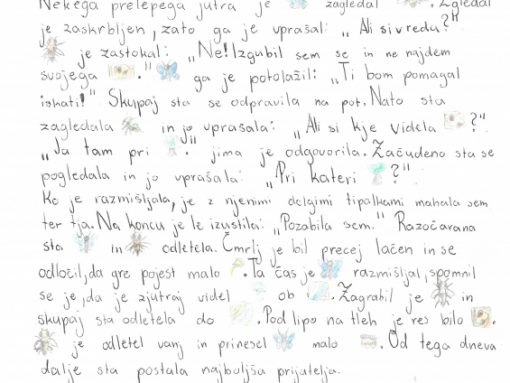 Nekega prelepega jutra je zagledal . Zgledal
je zaskrbljen, zato ga je vprašal: „Ali si v redu?"
je zastokal: „Ne! Izgubil sem se in ne najdem
svojega ." ga je potolažil: „Ti bom pomagal
iskati!" Skupaj sta se odpravila na pot. Nato sta
zagledala in jo vprašala: „Ali si kje videla ?".
„Ja tam pri ." jima je odgovorila. Začudeno sta se
pogledala in jo vprašala: „Pri kateri ?"
Ko je razmišljala, je z njenimi dolgimi tipalkami mahala sem
ter tja. Na koncu je le izustila: „Pozabila sem." Razočarana
sta in odletela. Čmrlj je bil precej lačen in se
odločil, da gre pojest malo . Ta čas je razmišljal, spomnil
se je, da je zjutraj videl ob . Zagrabil je in
skupaj sta odletela do . Pod lipo na tleh je res bilo .
je odletel vanj in prinesel malo . Od tega dneva
dalje sta postala najboljša prijatelja.